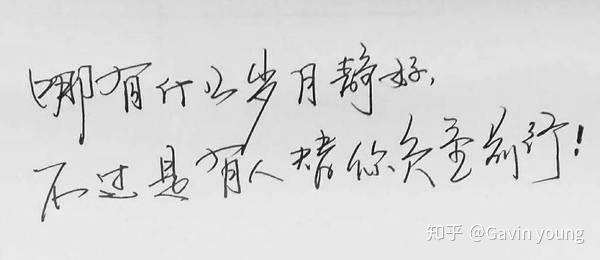 哪有什么岁月静好，
不过是有人替你负重前行！
知乎 @Gavin young